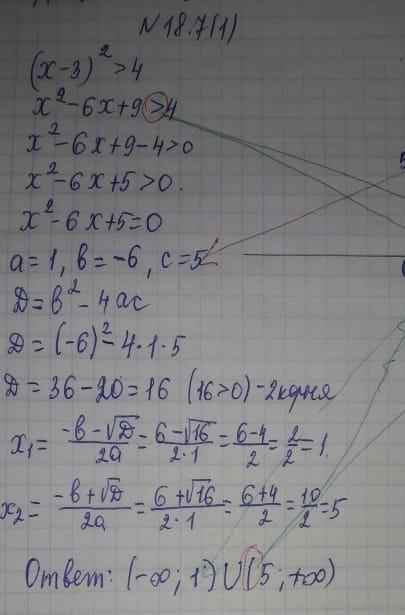 N18.7(1)
(x-3)² > 4
x² - 6x + 9 > 4
x² - 6x + 9 - 4 > 0
x² - 6x + 5 > 0.
x² - 6x + 5 = 0
a = 1, b = -6, c = 5
D = b² - 4ac
D = (-6)² - 4·1·5
D = 36 - 20 = 16 (16>0) - 2 корня
x₁ = (-b - √D)/2a = (6 - √16)/(2·1) = (6-4)/2 = 2/2 = 1.
x₂ = (-b + √D)/2a = (6 + √16)/(2·1) = (6+4)/2 = 10/2 = 5
Ответ: (-∞; 1) ∪ (5; +∞)